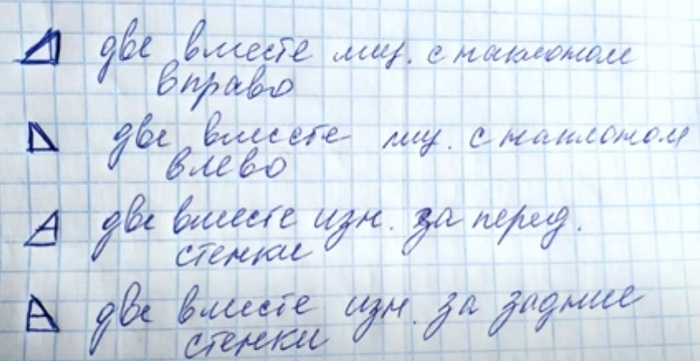 две вместе лиц. с наклоном
вправо
две вместе лиц. с наклоном
влево
две вместе изн. за перед.
стенки
две вместе изн. за задние
стенки